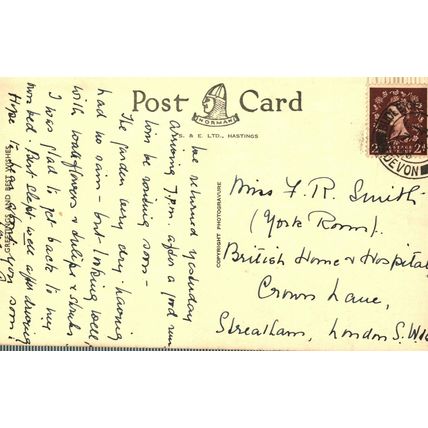 Post Card
NORMAN
S. & E. LTD., HASTINGS
COPYRIGHT PHOTOGRAVURE
2d
2d
DEVON
We returned yesterday
arriving 7 p.m. after a good run
will be writing soon -
The garden very dry - having
had no rain - but looking well,
with wallflowers & tulips &
I was glad to get back to my
own bed. But slept well after driving
Hope to hear from you soon.
Miss F. R. Smith
(York Room).
British Home & Hospital
Crown Lane,
Streatham, London S.W.16